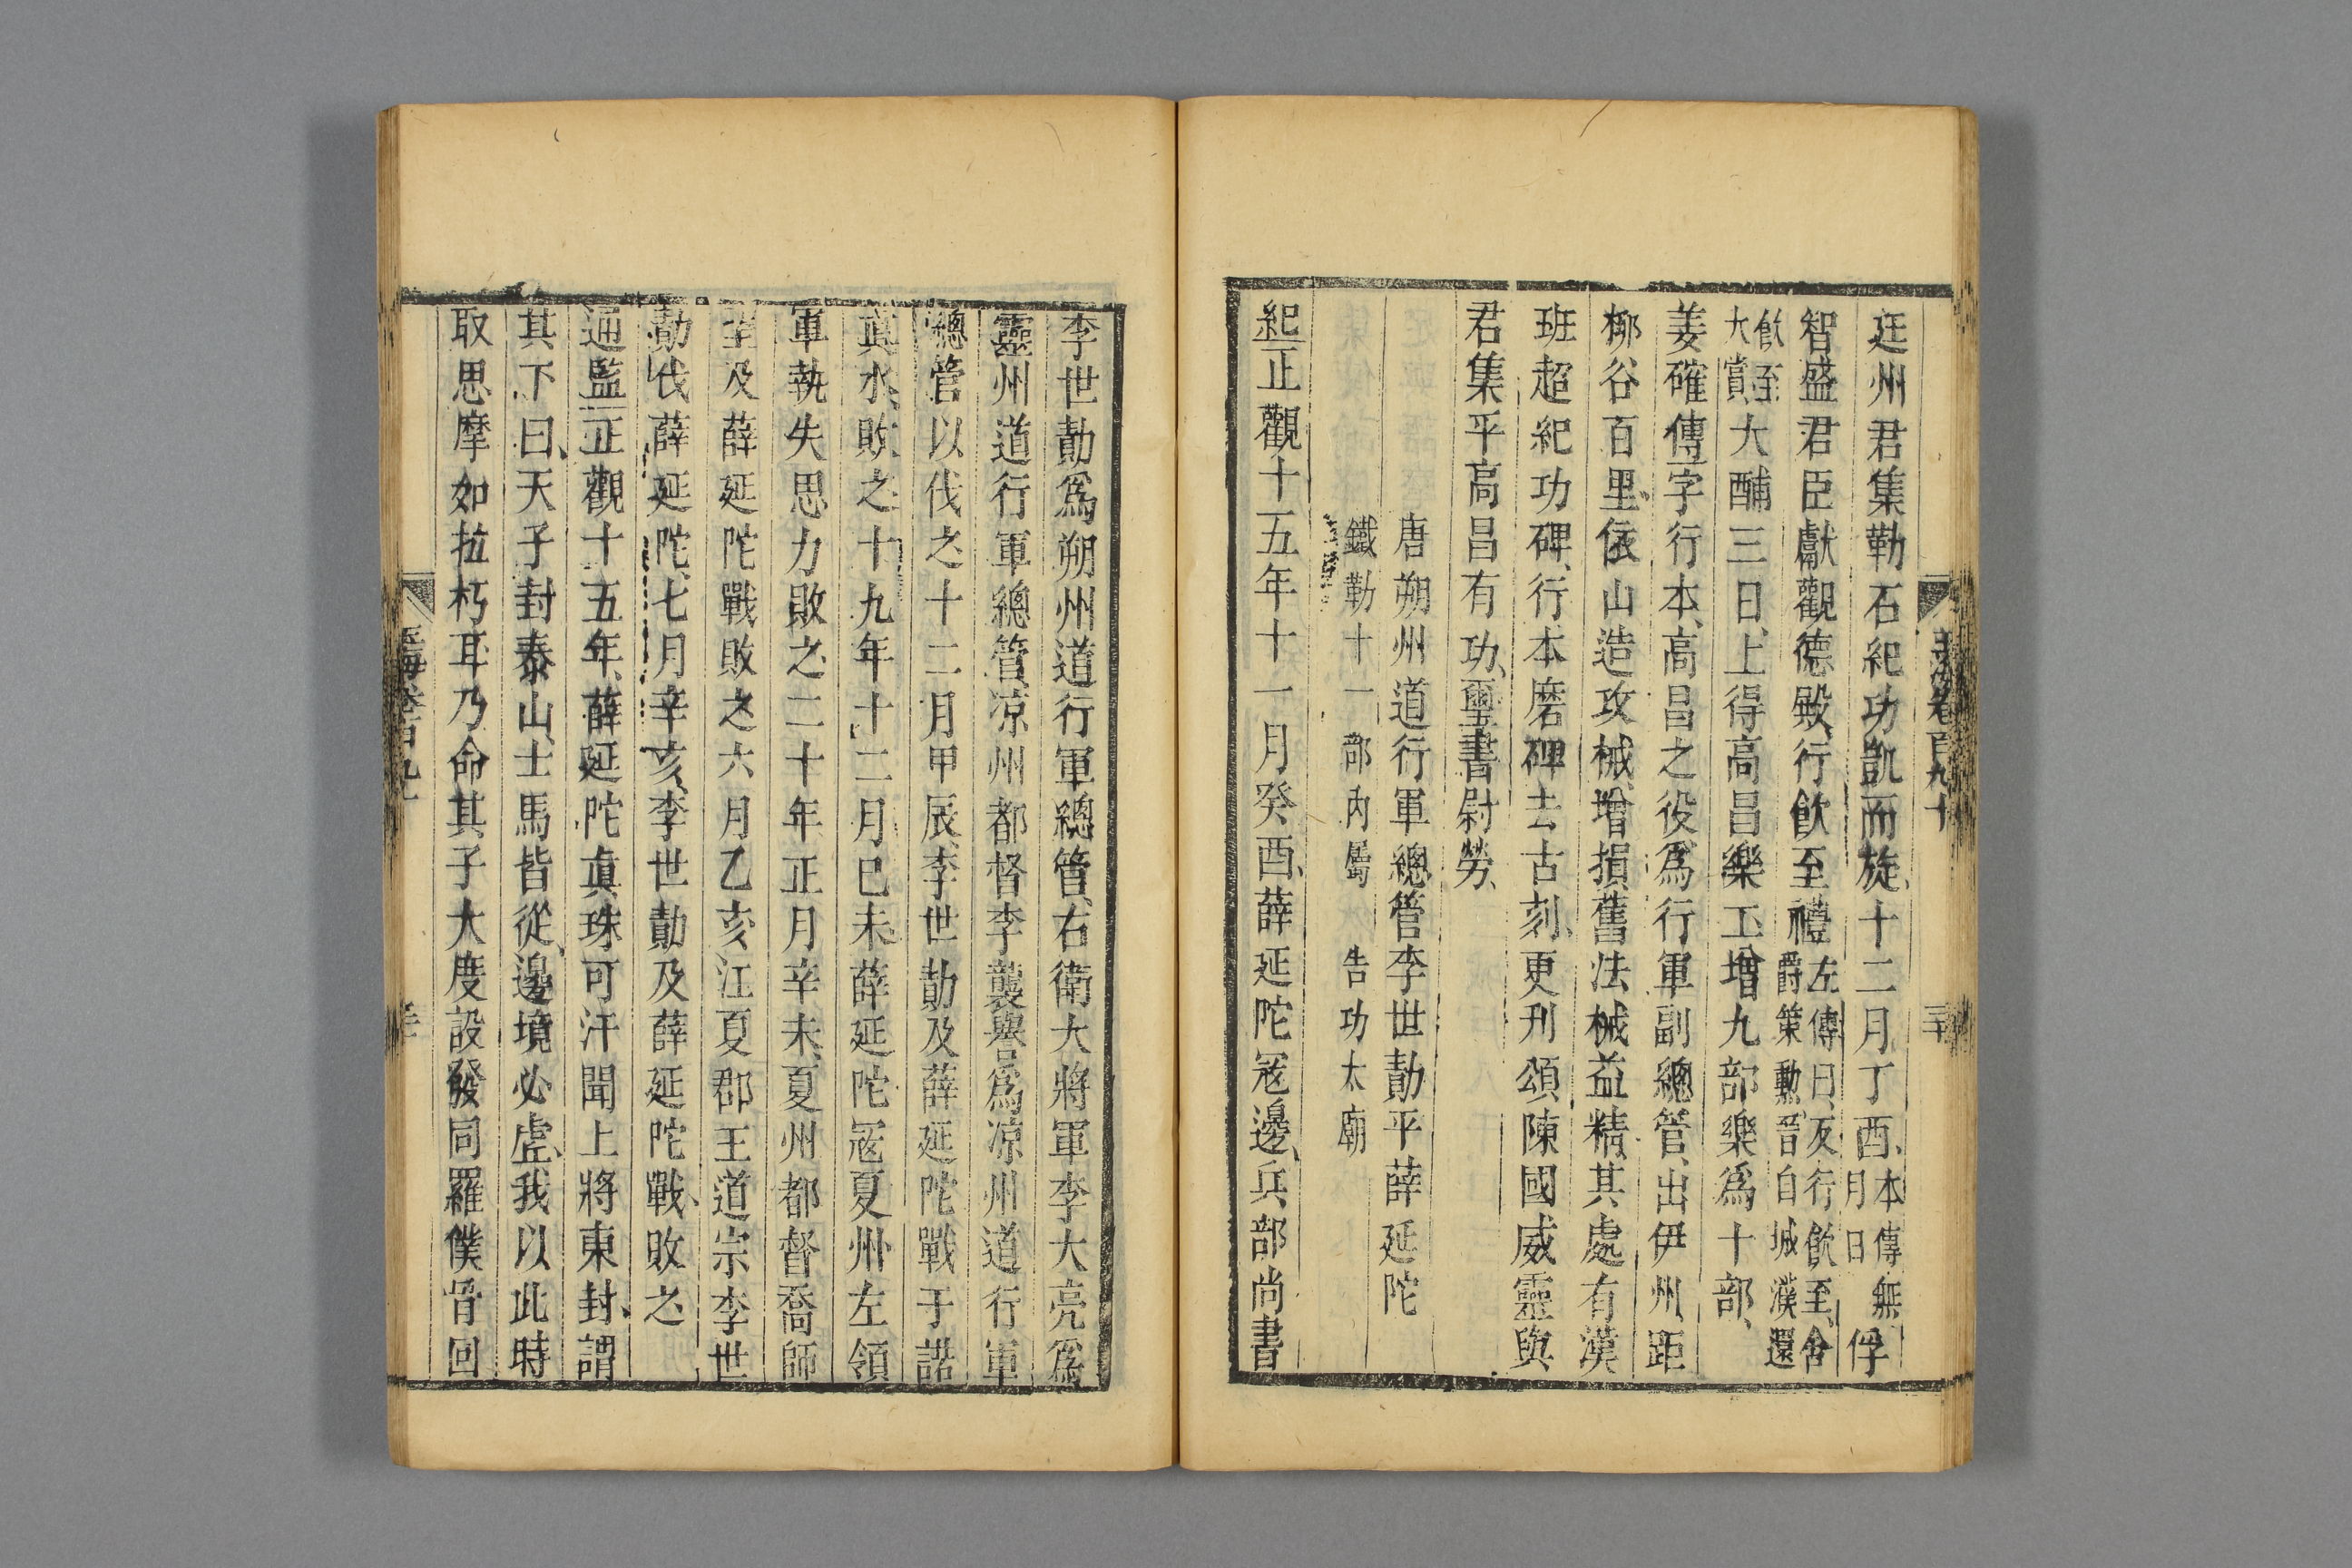 廷州君集勒石紀功凱而旋十二月丁酉本傳無月日俘
智盛君臣獻觀德殿行飲至禮左傳曰反行飲至舍爵策勳晉自城濮還
飲至大賞大酺三日上得高昌樂工增九部樂爲十部
姜確傳字行本高昌之役爲行軍副總管出伊州距
柳谷百里依山造攻械增損舊法械益精其處有漢
班超紀功碑行本磨碑去古刻更刊頌陳國威靈與
君集平高昌有功璽書尉勞
唐朔州道行軍總管李世勣平薛延陀
鐵勒十一部內屬 告功太廟
紀正觀十五年十一月癸酉薛延陀宼邊兵部尚書
李世勣爲朔州道行軍總管右衛大將軍李大亮爲
靈州道行軍總管涼州都督李襲譽爲涼州道行軍
總管以伐之十二月甲辰李世勣及薛延陀戰于諾
真水敗之十九年十二月巳未薛延陀宼夏州左領
軍執失思力敗之二十年正月辛未夏州都督喬師
望及薛延陀戰敗之六月乙亥江夏郡王道宗李世
勣伐薛延陀七月辛亥李世勣及薛延陀戰敗之
通監正觀十五年薛延陀真珠可汗聞上將東封謂
其下曰天子封泰山士馬皆從邊境必虛我以此時
取思摩如拉朽耳乃命其子大度設發同羅僕骨回
玉海卷百九十一